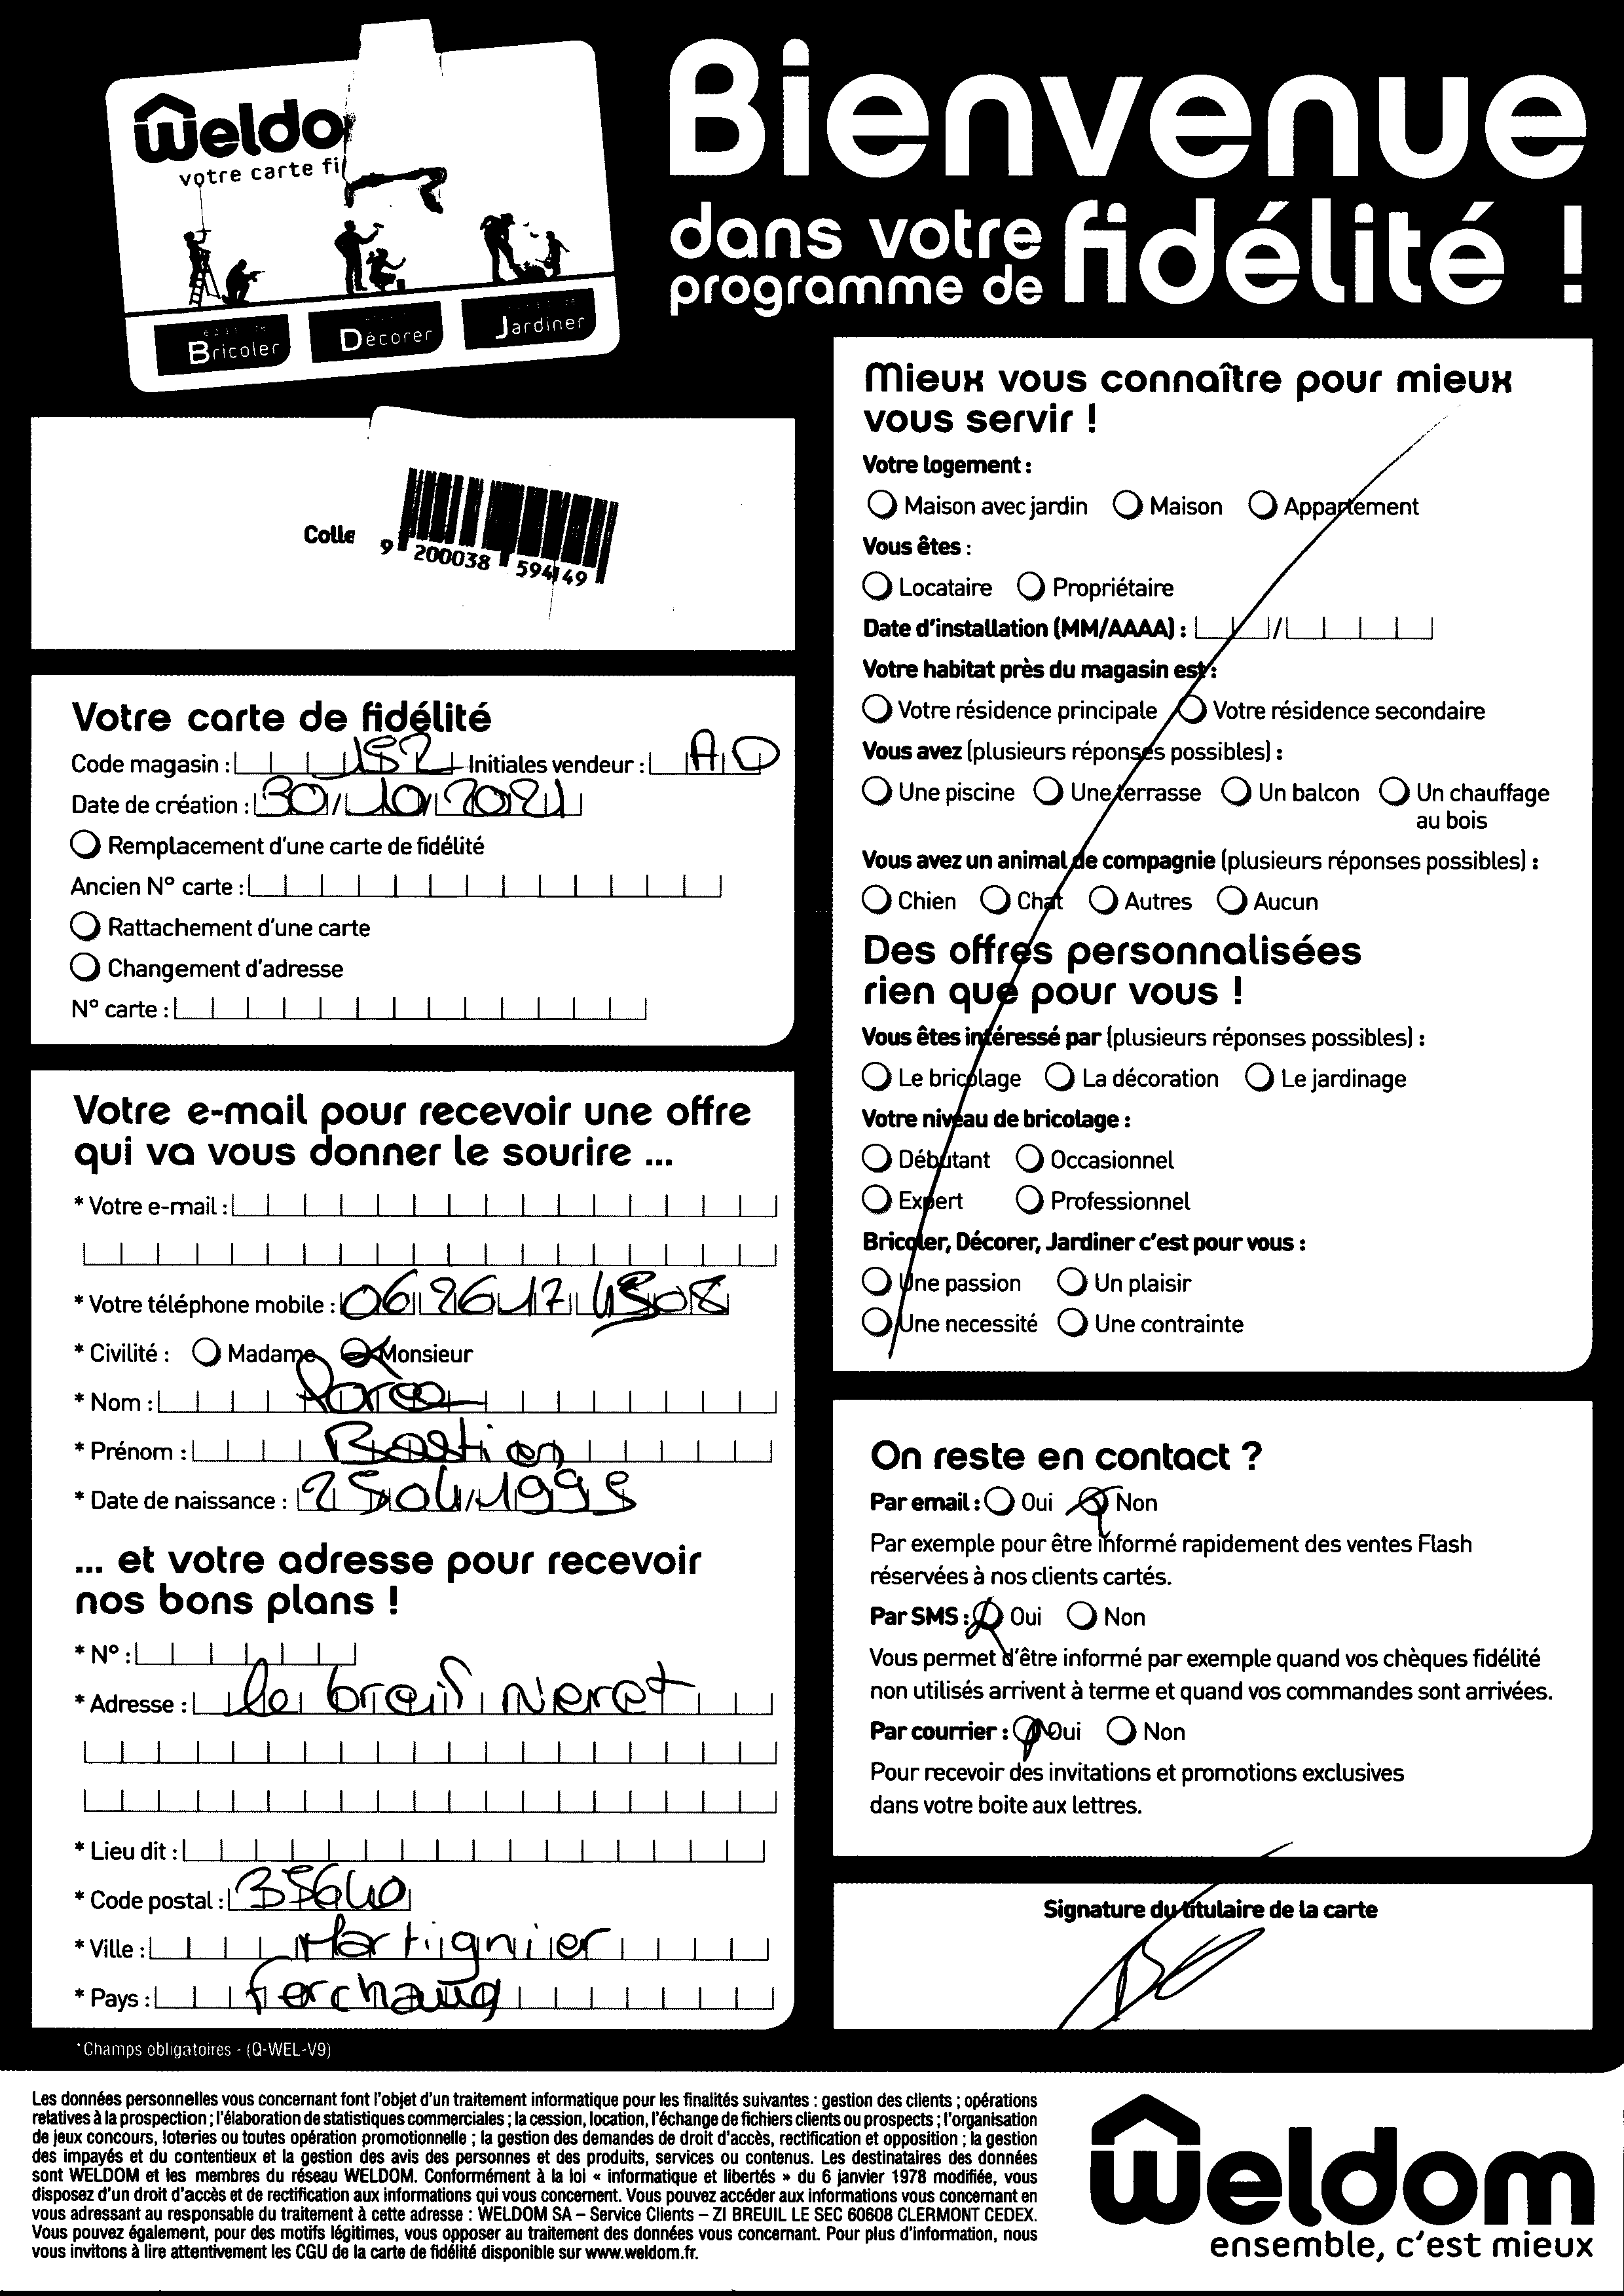 Weldo
votre carte fi
Bricoler
Décorer
Jardiner
Bienvenue
dans votre
programme de fidélité !
Colle
9 200038 594149
Votre carte de fidélité
Code magasin : 152 Initiales vendeur : AD
Date de création : 30/10/2021
Remplacement d'une carte de fidélité
Ancien N° carte :
Rattachement d'une carte
Changement d'adresse
N° carte :
Votre e-mail pour recevoir une offre
qui va vous donner le sourire ...
* Votre e-mail :
* Votre téléphone mobile : 06 26 17 4508
* Civilité : Madame Monsieur
* Nom :
* Prénom : Bastien
* Date de naissance : 25 04/1995
... et votre adresse pour recevoir
nos bons plans !
* N° :
* Adresse : le breil Neret
* Lieu dit :
* Code postal : 35640
* Ville : Martignier
* Pays : Ferchaud
*Champs obligatoires - (Q-WEL-V9)
Mieux vous connaître pour mieux
vous servir !
Votre logement :
Maison avec jardin Maison Appartement
Vous êtes :
Locataire Propriétaire
Date d'installation (MM/AAAA) : /
Votre habitat près du magasin est :
Votre résidence principale Votre résidence secondaire
Vous avez (plusieurs réponses possibles) :
Une piscine Une terrasse Un balcon Un chauffage
au bois
Vous avez un animal de compagnie (plusieurs réponses possibles) :
Chien Chat Autres Aucun
Des offres personnalisées
rien que pour vous !
Vous êtes intéressé par (plusieurs réponses possibles) :
Le bricolage La décoration Le jardinage
Votre niveau de bricolage :
Débutant Occasionnel
Expert Professionnel
Bricoler, Décorer, Jardiner c'est pour vous :
Une passion Un plaisir
Une necessité Une contrainte
On reste en contact ?
Par email : Oui Non
Par exemple pour être informé rapidement des ventes Flash
réservées à nos clients cartés.
Par SMS : Oui Non
Vous permet d'être informé par exemple quand vos chèques fidélité
non utilisés arrivent à terme et quand vos commandes sont arrivées.
Par courrier : Oui Non
Pour recevoir des invitations et promotions exclusives
dans votre boite aux lettres.
Signature du titulaire de la carte
Les données personnelles vous concernant font l'objet d'un traitement informatique pour les finalités suivantes : gestion des clients ; opérations
relatives à la prospection ; l'élaboration de statistiques commerciales ; la cession, location, l'échange de fichiers clients ou prospects ; l'organisation
de jeux concours, loteries ou toutes opération promotionnelle ; la gestion des demandes de droit d'accès, rectification et opposition ; la gestion
des impayés et du contentieux et la gestion des avis des personnes et des produits, services ou contenus. Les destinataires des données
sont WELDOM et les membres du réseau WELDOM. Conformément à la loi « informatique et libertés » du 6 janvier 1978 modifiée, vous
disposez d'un droit d'accès et de rectification aux informations qui vous concernent. Vous pouvez accéder aux informations vous concernant en
vous adressant au responsable du traitement à cette adresse : WELDOM SA – Service Clients – ZI BREUIL LE SEC 60608 CLERMONT CEDEX.
Vous pouvez également, pour des motifs légitimes, vous opposer au traitement des données vous concernant. Pour plus d'information, nous
vous invitons à lire attentivement les CGU de la carte de fidélité disponible sur www.weldom.fr.
Weldom
ensemble, c'est mieux